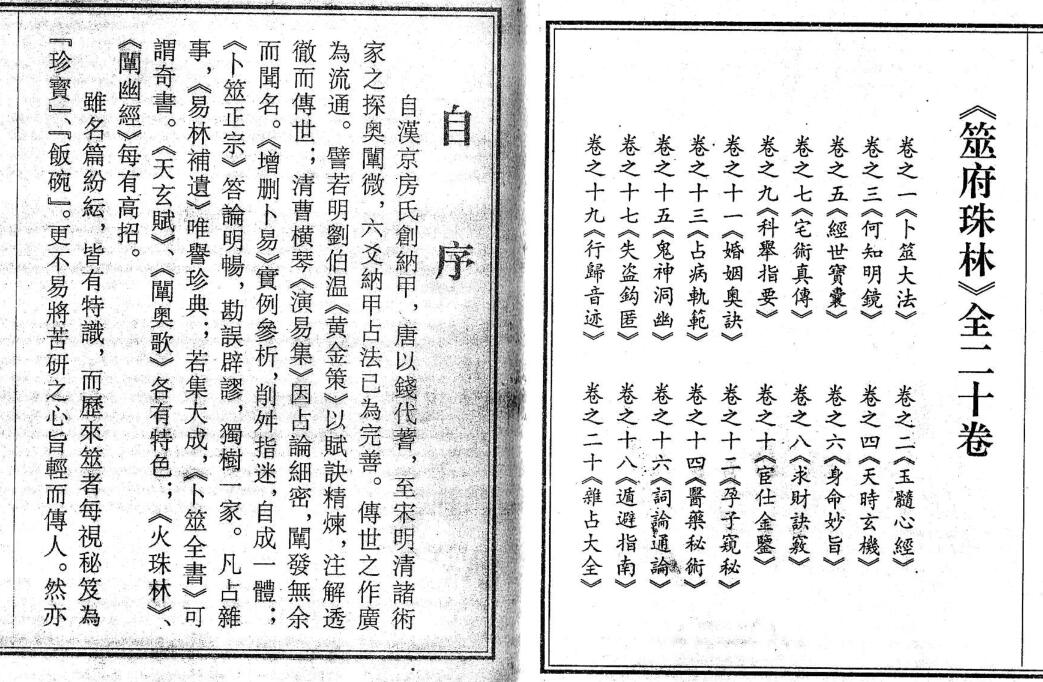 《筮府珠林》全二十卷
卷之一《卜筮大法》
卷之二《玉髓心經》
卷之三《何知明鏡》
卷之四《天時玄機》
卷之五《經世寶囊》
卷之六《身命妙旨》
卷之七《宅術真傳》
卷之八《求財訣竅》
卷之九《科舉指要》
卷之十《宦仕金鑒》
卷之十一《婚姻奧訣》
卷之十二《孕子窺秘》
卷之十三《占病軌範》
卷之十四《醫藥秘術》
卷之十五《鬼神洞幽》
卷之十六《詞論通論》
卷之十七《失盜鈎匿》
卷之十八《遁避指南》
卷之十九《行歸音迹》
卷之二十《雜占大全》
自序
自漢京房氏創納甲，唐以錢代蓍，至宋明清諸術
家之探奥闡微，六爻納甲占法已為完善。傳世之作廣
為流通。譬若明劉伯温《黄金策》以賦訣精煉，注解透
徹而傳世；清曹横琴《演易集》因占論細密，闡發無余
而聞名。《增删卜易》實例參析，削舛指迷，自成一體；
《卜筮正宗》答論明暢，勘誤辟謬，獨樹一家。凡占雜
事，《易林補遺》唯譽珍典；若集大成，《卜筮全書》可
謂奇書。《天玄賦》、《闡奥歌》各有特色；《火珠林》、
《闡幽經》每有高招。
雖名篇紛紜，皆有特識，而歷來筮者每視秘笈為
『珍寶』、『飯碗』。更不易將苦研之心旨輕而傳人。然亦